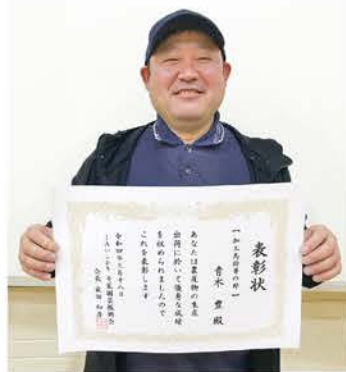 表彰状
【加工馬鈴薯の部】
青木 豊 殿
あなたは農産物の生産
出荷に於いて優秀な成績
を収められましたので
これを表彰します
令和四年三月十八日
会長